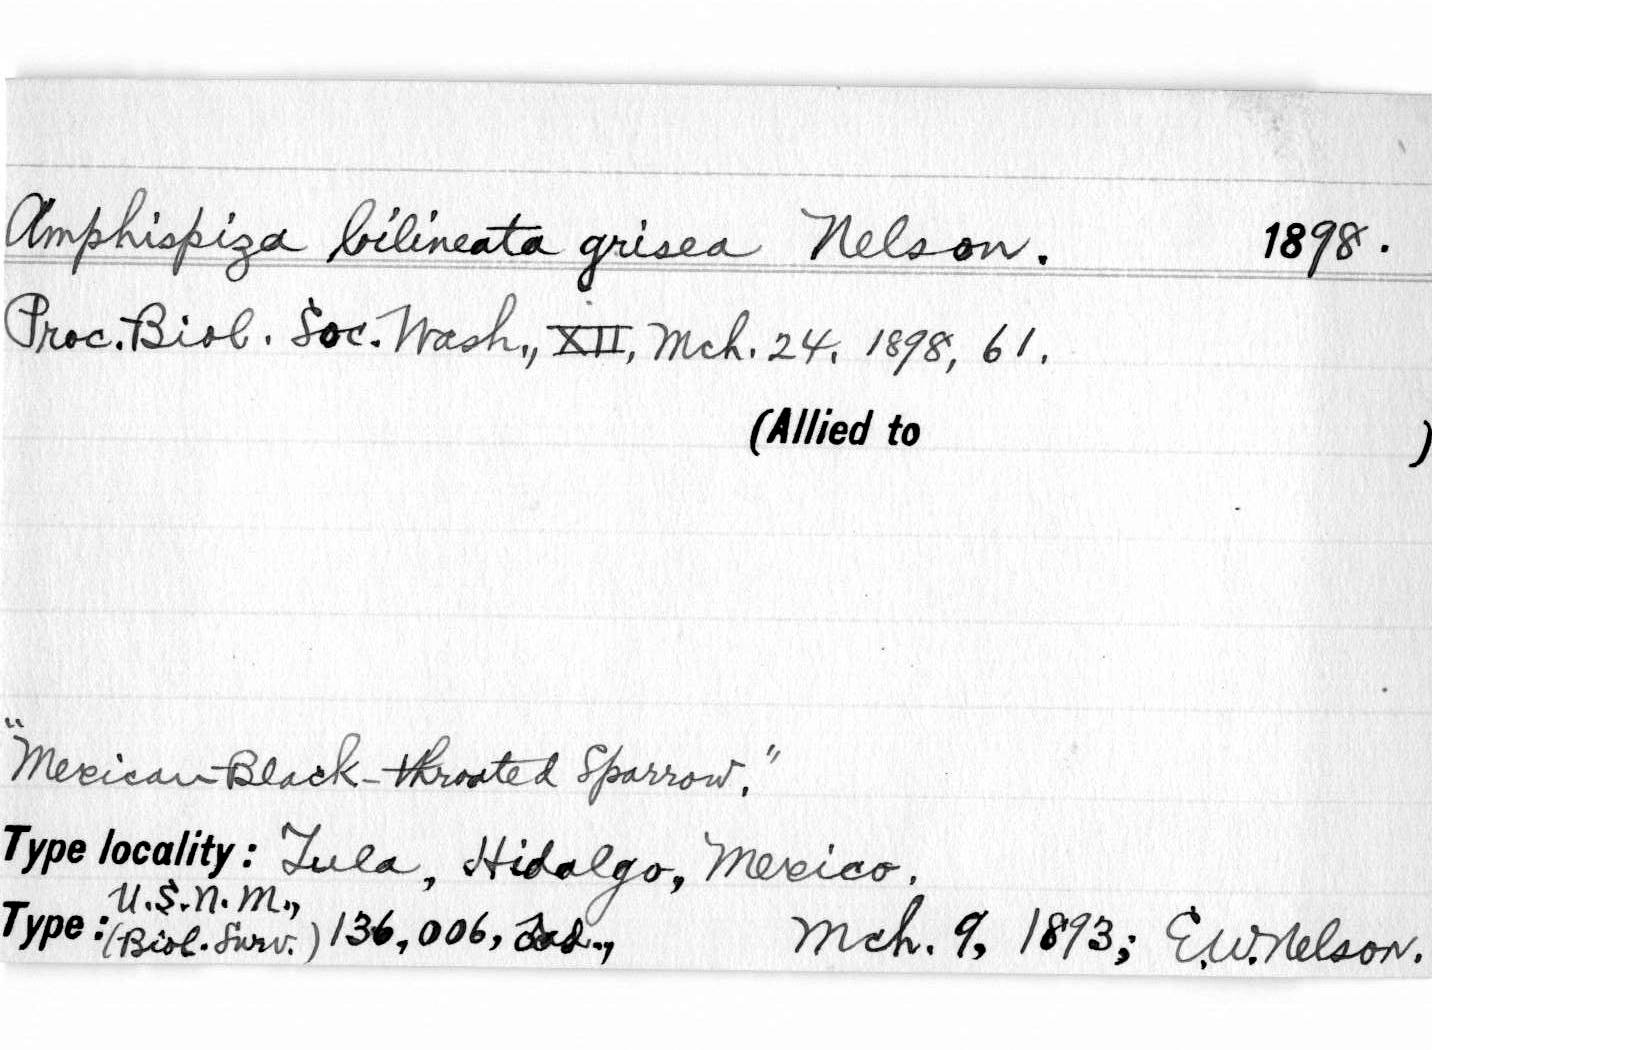 Amphispiza bilineata grisea Nelson. 1898.
Proc. Biol. Soc. Wash., XII, Mch. 24, 1898, 61.
(Allied to )
"Mexican Black-throated Sparrow."
Type locality: Tula, Hidalgo, Mexico.
U.S.N.M.,
Type: (Biol. Surv.) 136,006, ad., Mch. 9, 1893; E.W. Nelson.